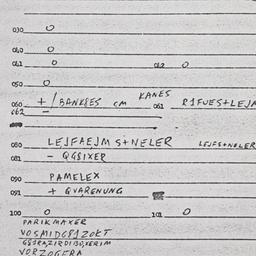 030 0
040 0
041 0 042 0
050 0
060 + / BANKSES CM KANES 061 R1FUES+LEJA
062 –
080 LEJFAEJM S+NELER LEJFS+NELER
081 – QGSIXER
090 PAMELEX
091 + QVARENUNG
100 0 101 0
PARIKMAXER
VOSMIDG81ZOKT
VORZOGERA